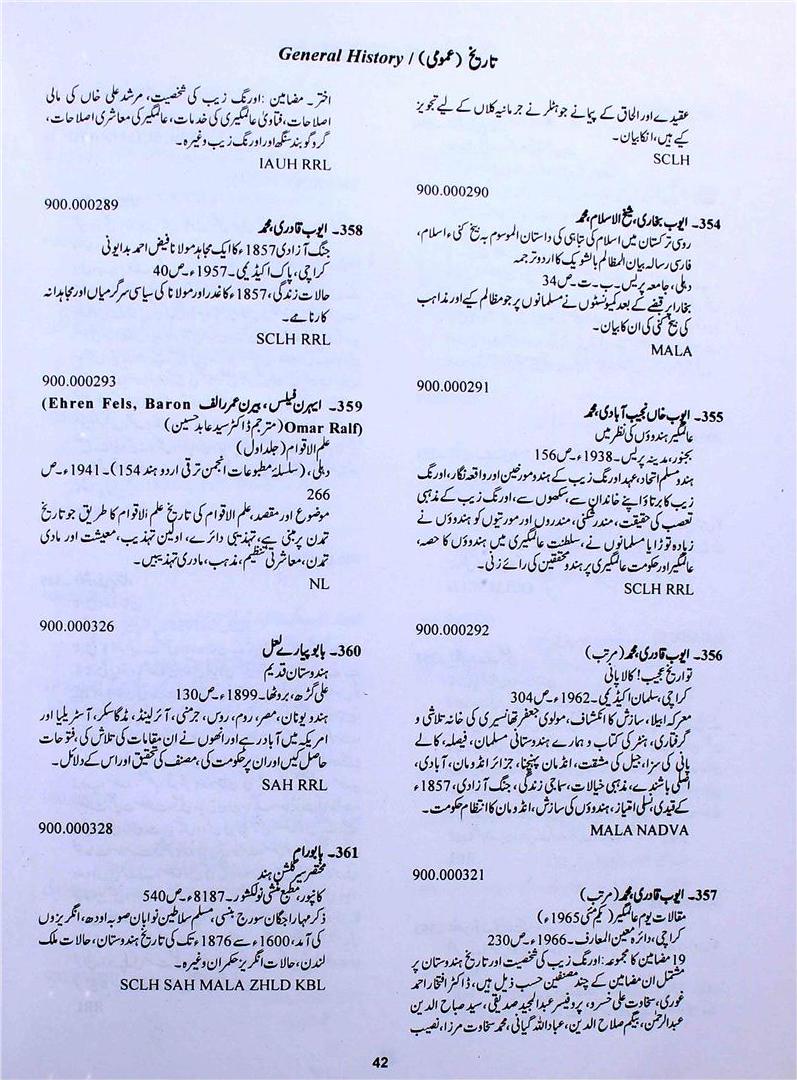 تاریخ (عمومی) / General History
عقیدے اور الحاق کے پیمانے جو ہٹلر نے جرمانیہ کلاں کے لیے تجویز
کیے ہیں، انکا بیان۔
SCLH
900.000290
354۔ ایوب بخاری، شیخ الاسلام، محمد
روسی ترکستان میں اسلام کی تباہی کی داستان الموسوم بہ بیخ کنیء اسلام،
فارسی رسالہ بیان المظالم بالشویک کا اردو ترجمہ
دہلی، جامعہ پریس۔ ب۔ ت۔ ص34
بخارا پر قبضے کے بعد کمیونسٹوں نے مسلمانوں پر جو مظالم کیے اور مذاہب
کی بیخ کنی کی ان کا بیان۔
MALA
900.000291
355۔ ایوب خاں نجیب آبادی، محمد
عالمگیر ہندوؤں کی نظر میں
بجنور، مدینہ پریس۔ 1938ء۔ ص156
ہندو مسلم اتحاد، عہد اورنگ زیب کے ہندو مورخین اور واقعہ نگار، اورنگ
زیب کا برتاؤ اپنے خاندان سے، سکھوں سے، اورنگ زیب کے مذہبی
تعصب کی حقیقت، مندر شکنی، مندروں اور مورتیوں کو ہندوؤں نے
زیادہ توڑا یا مسلمانوں نے، سلطنت عالمگیری میں ہندوؤں کا حصہ،
عالمگیر اور حکومت عالمگیری پر ہندو محققین کی رائے زنی۔
SCLH RRL
900.000292
356۔ ایوب قادری، محمد (مرتب)
تواریخ عجیب! کالا پانی
کراچی، سلمان اکیڈیمی۔ 1962ء۔ ص304
معرکہ امبیلا، سازش کا انکشاف، مولوی جعفر تھانسیری کی خانہ تلاشی و
گرفتاری، ہنٹر کی کتاب و ہمارے ہندوستانی مسلمان، فیصلہ، کالے
پانی کی سزا، جیل کی مشقت، انڈمان پہنچنا، جزائر انڈومان، آبادی،
اصلی باشندے، مذہبی خیالات، سماجی زندگی، جنگ آزادی، 1857ء
کے قیدی، نسلی امتیاز، ہندوؤں کی سازش، انڈومان کا انتظام حکومت۔
MALA NADVA
900.000321
357۔ ایوب قادری، محمد (مرتب)
مقالات یوم عالمگیر (یکم مئی 1965ء)
کراچی، دائرہ معین المعارف۔ 1966ء۔ ص230
19 مضامین کا مجموعہ: اورنگ زیب کی شخصیت اور تاریخ ہندوستان پر
مشتمل ان مضامین کے چند مصنفین حسب ذیل ہیں، ڈاکٹر افتخار احمد
غوری، سخاوت علی خسرو، پروفیسر عبدالمجید صدیقی، سید صباح الدین
عبدالرحمٰن، بیگم صلاح الدین، عباداللہ گیانی، محمد سخاوت مرزا، نصیب
اختر۔ مضامین: اورنگ زیب کی شخصیت، مرشد علی خاں کی مالی
اصلاحات، فتاویٰ عالمگیری کی خدمات، عالمگیر کی معاشری اصلاحات،
گرو گوبند سنگھ اور اورنگ زیب وغیرہ۔
IAUH RRL
900.000289
358۔ ایوب قادری، محمد
جنگ آزادی 1857ء کا ایک مجاہد مولانا فیض احمد بدایونی
کراچی، پاک اکیڈیمی۔ 1957ء۔ ص40
حالات زندگی، 1857ء کا غدر اور مولانا کی سیاسی سرگرمیاں اور مجاہدانہ
کارنامے۔
SCLH RRL
900.000293
359۔ ایہرن فیلس، بیرن عمر رالف (Ehren Fels, Baron
Omar Ralf) (مترجم ڈاکٹر سید عابد حسین)
علم الاقوام (جلد اول)
دہلی، (سلسلۂ مطبوعات انجمن ترقی اردو ہند 154)۔ 1941ء۔ ص
266
موضوع اور مقصد، علم الاقوام کی تاریخ علم الاقوام کا طریق جو تاریخ
تمدن پر مبنی ہے، تہذیبی دائرے، اولین تہذیب، معیشت اور مادی
تمدن، معاشرتی تنظیم، مذہب، مادری تہذیبیں۔
NL
900.000326
360۔ بابو پیارے لعل
ہندوستان قدیم
علی گڑھ، بروٹھا۔ 1899ء۔ ص130
ہندو یونان، مصر، روم، روس، جرمنی، آئرلینڈ، مڈگاسکر، آسٹریلیا اور
امریکہ میں آباد رہے اور انھوں نے ان مقامات کی تلاش کی، فتوحات
حاصل کیں اور ان پر حکومت کی، مصنف کی تحقیق اور اس کے دلائل۔
SAH RRL
900.000328
361۔ بابو رام
مختصر سیر گلشن ہند
کانپور، مطبع منشی نولکشور۔ 8187ء۔ ص540
ذکر مہاراجگان سورج بنسی، مسلم سلاطین نوابان صوبہ اودھ، انگریزوں
کی آمد، 1600ء سے 1876ء تک کی تاریخ ہندوستان، حالات ملک
لندن، حالات انگریز حکمران وغیرہ۔
SCLH SAH MALA ZHLD KBL
42